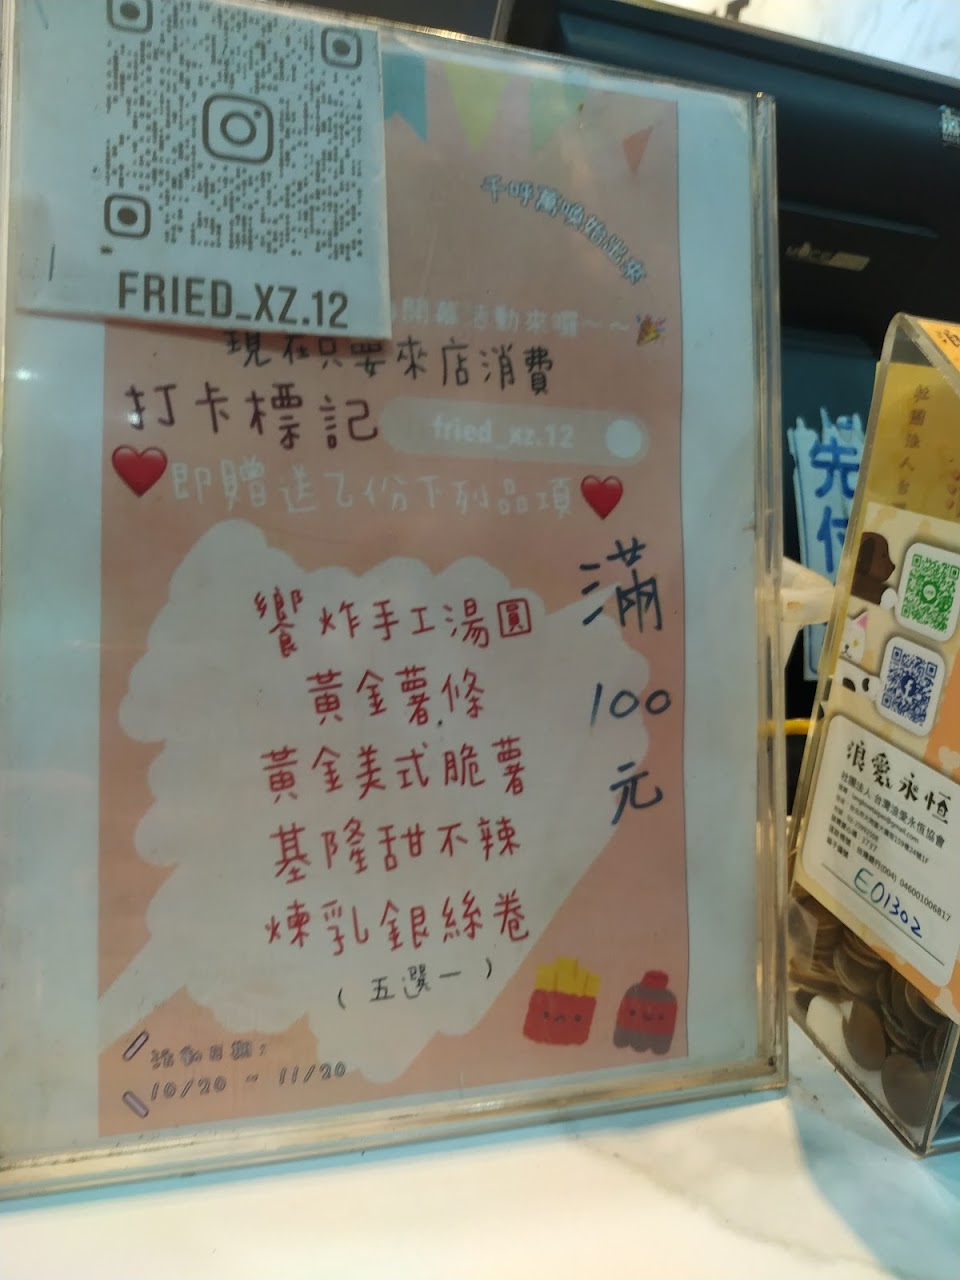 FRIED_XZ.12
千呼萬喚始出來
開幕活動來囉~~
現在只要來店消費
打卡標記
fried_xz.12
即贈送乙份下列品項
滿
100
元
饗炸手工湯圓
黃金薯條
黃金美式脆薯
基隆甜不辣
煉乳銀絲卷
(五選一)
活動日期:
10/20 - 11/20
先付
浪愛永恆
社團法人台灣浪愛永恆協會
046001006817
E01302